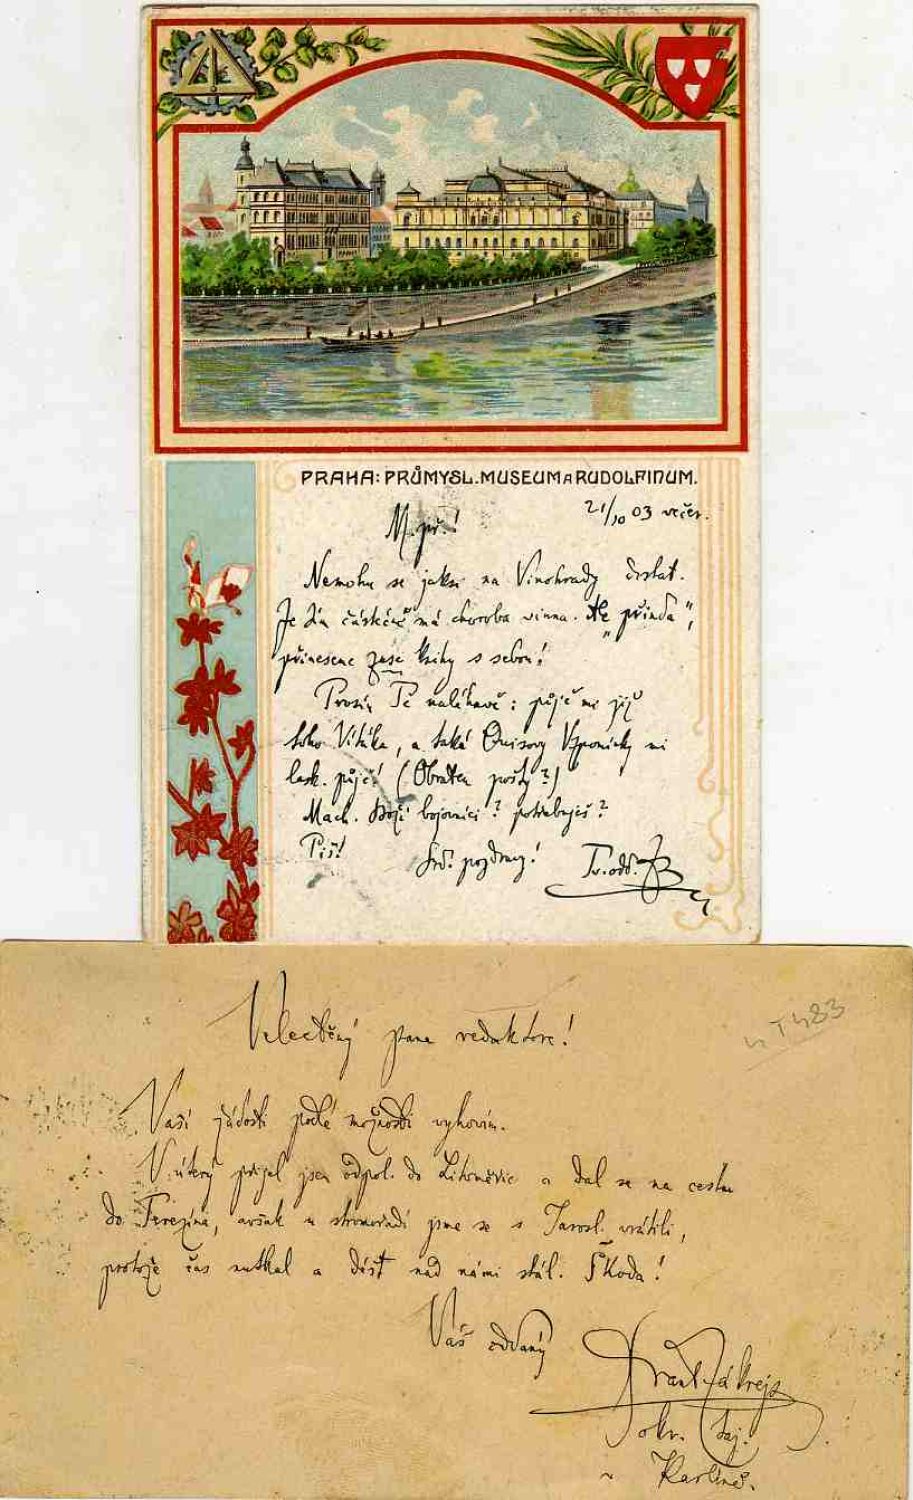 PRAHA: PRŮMYSL. MUSEUM A RUDOLFINUM.
21/10 03 večer.
M. př.!
Nemohu se jaksi na Vinohrady dostat.
Je tím částečně má choroba vinna. Až "přindu",
přinesene zase knihy s sebou!
Prosím Tě naléhavě: půjč mi již
toho Vítáka, a také Quisovy Vzpomínky mi
lask. půjč! (Obratem pošty?)
Mach. Boží bojovníci? potřebuješ?
Piš! Srd. pozdravy! Tv. odd.
Velectěný pane redaktore!
Vaší žádosti podlé možnosti vyhovím.
V úterý přijel jsem odpol. do Litoměřic a dal se na cestu
do Terezína, avšak u stromořadí jsme se s Jarosl. vrátili,
protože čas nutkal a déšť nad námi stál. Škoda!
Váš oddaný
Frant. Zákrejs
okr. taj.
v Karlíně.